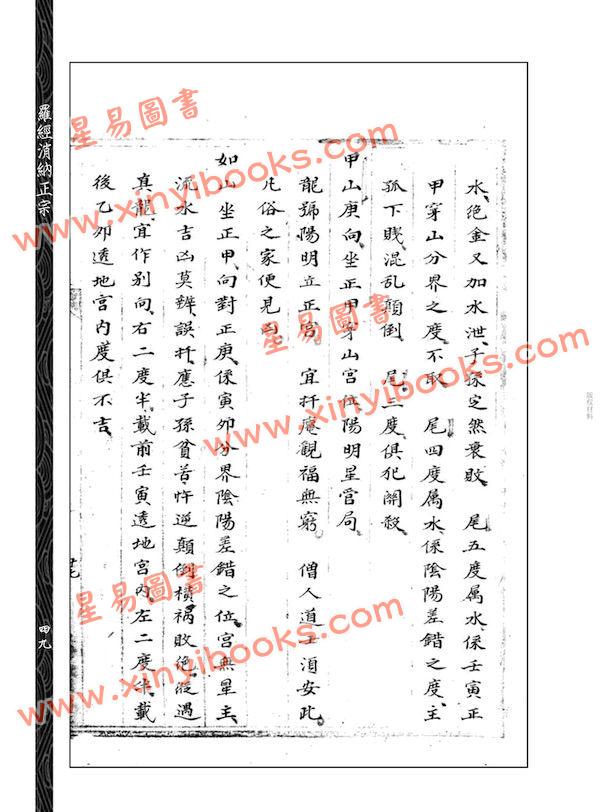 水絶金又加水泄子孫定然衰敗　尾五度属水係壬寅正
甲穿山分界之度不取　尾四度属水係陰陽差錯之度主
孤下賤混乱顛倒　尾三度俱犯關殺
甲山庚向坐正甲穿山宮位陽明星官局
龍號陽明立正宮　宜扦應觀福無窮　僧人道士須安此
凡俗之家便見凶
如山坐正甲向對正庚係寅夘分界陰陽差錯之位宮無星主
流水吉凶莫辨誤扦應子孫貧苦忤逆顛倒横祸敗絶或遇
真龍宜作别向右二度半載前壬寅透地宮内左二度半載
後乙夘透地宮内度俱不吉
羅經消納正宗
四九
版权材料
星易圖書
www.xinyibooks.com
星易圖書
www.xinyibooks.com
星易圖書
www.xinyibooks.com